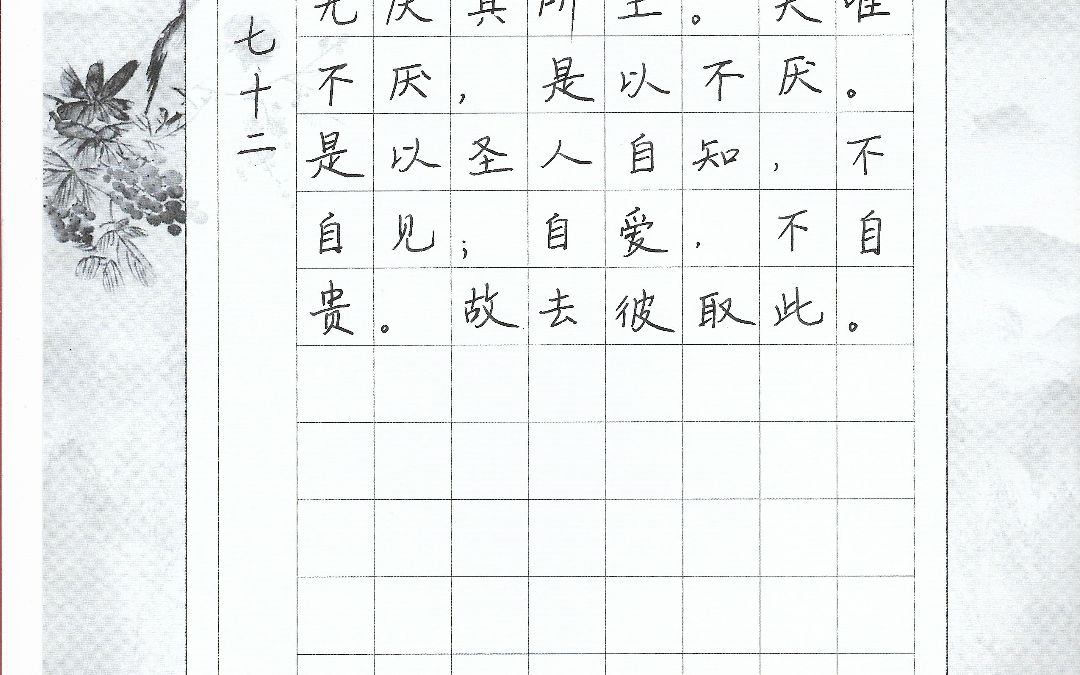 七十二
无厌其所生。夫唯
不厌，是以不厌。
是以圣人自知，不
自见；自爱，不自
贵。故去彼取此。